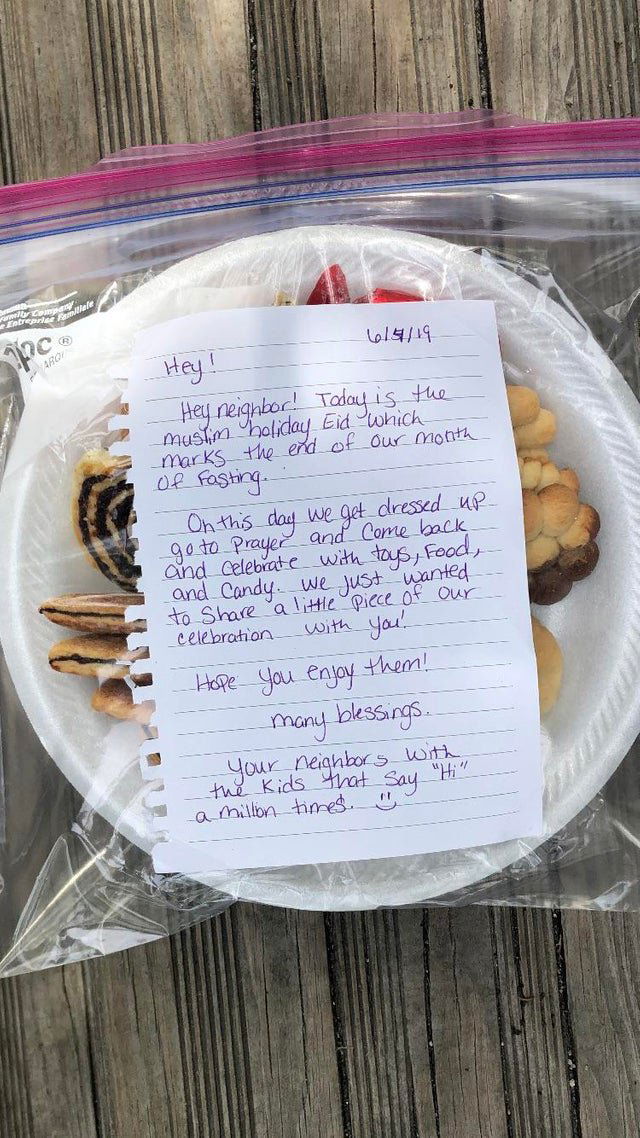 Family Company
Entreprise Familiale
®
6/5/19
Hey!
Hey neighbor! Today is the
muslim holiday Eid which
marks the end of our month
of Fasting.
On this day we get dressed up
go to Prayer and Come back
and celebrate with toys, Food,
and Candy. we just wanted
to Share a little piece of our
celebration with you!
Hope you enjoy them!
many blessings.
Your neighbors with
the kids that say "Hi"
a million times. :)